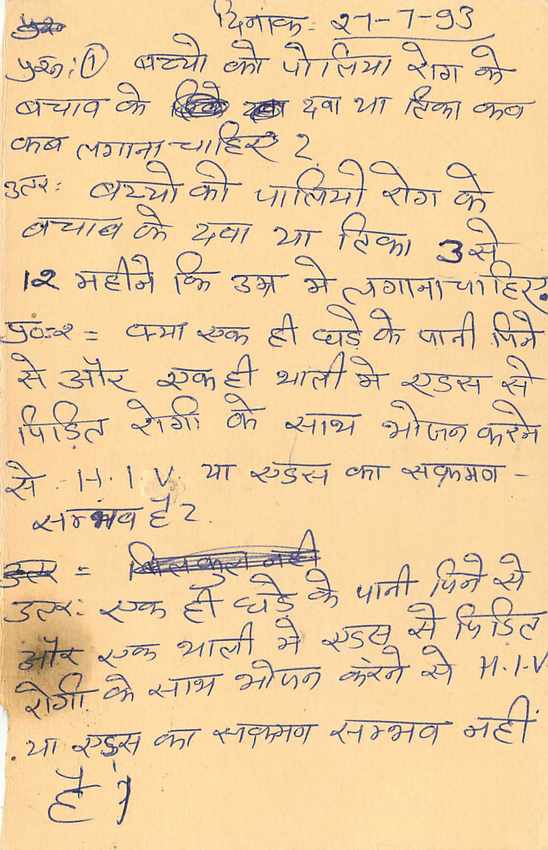 दिनाक:- 27-7-93
प्रश्न:① बच्चो को पोलिया रोग के
बचाव के दवा या टिका कब
कब लगाना चाहिए ?
उतर: बच्चो को पालियो रोग के
बचाब के दवा या टिका 3 से
12 महीने कि उम्र मे लगाना चाहिए.
प्र०-२ = क्या एक ही घड़े के पानी पिने
से और एक ही थाली मे एडस से
पिडित रोगी के साथ भोजन करने
से H.I.V. या एडस का सक्रमण -
सम्भव है ?
उतर = बिलकुल नही
उतर: एक ही घडे के पानी पिने से
और एक थाली मे एडस से पिडित
रोगी के साथ भोजन करने से H.I.V
या एडस का सक्रमण सम्भव नहीं
है ।